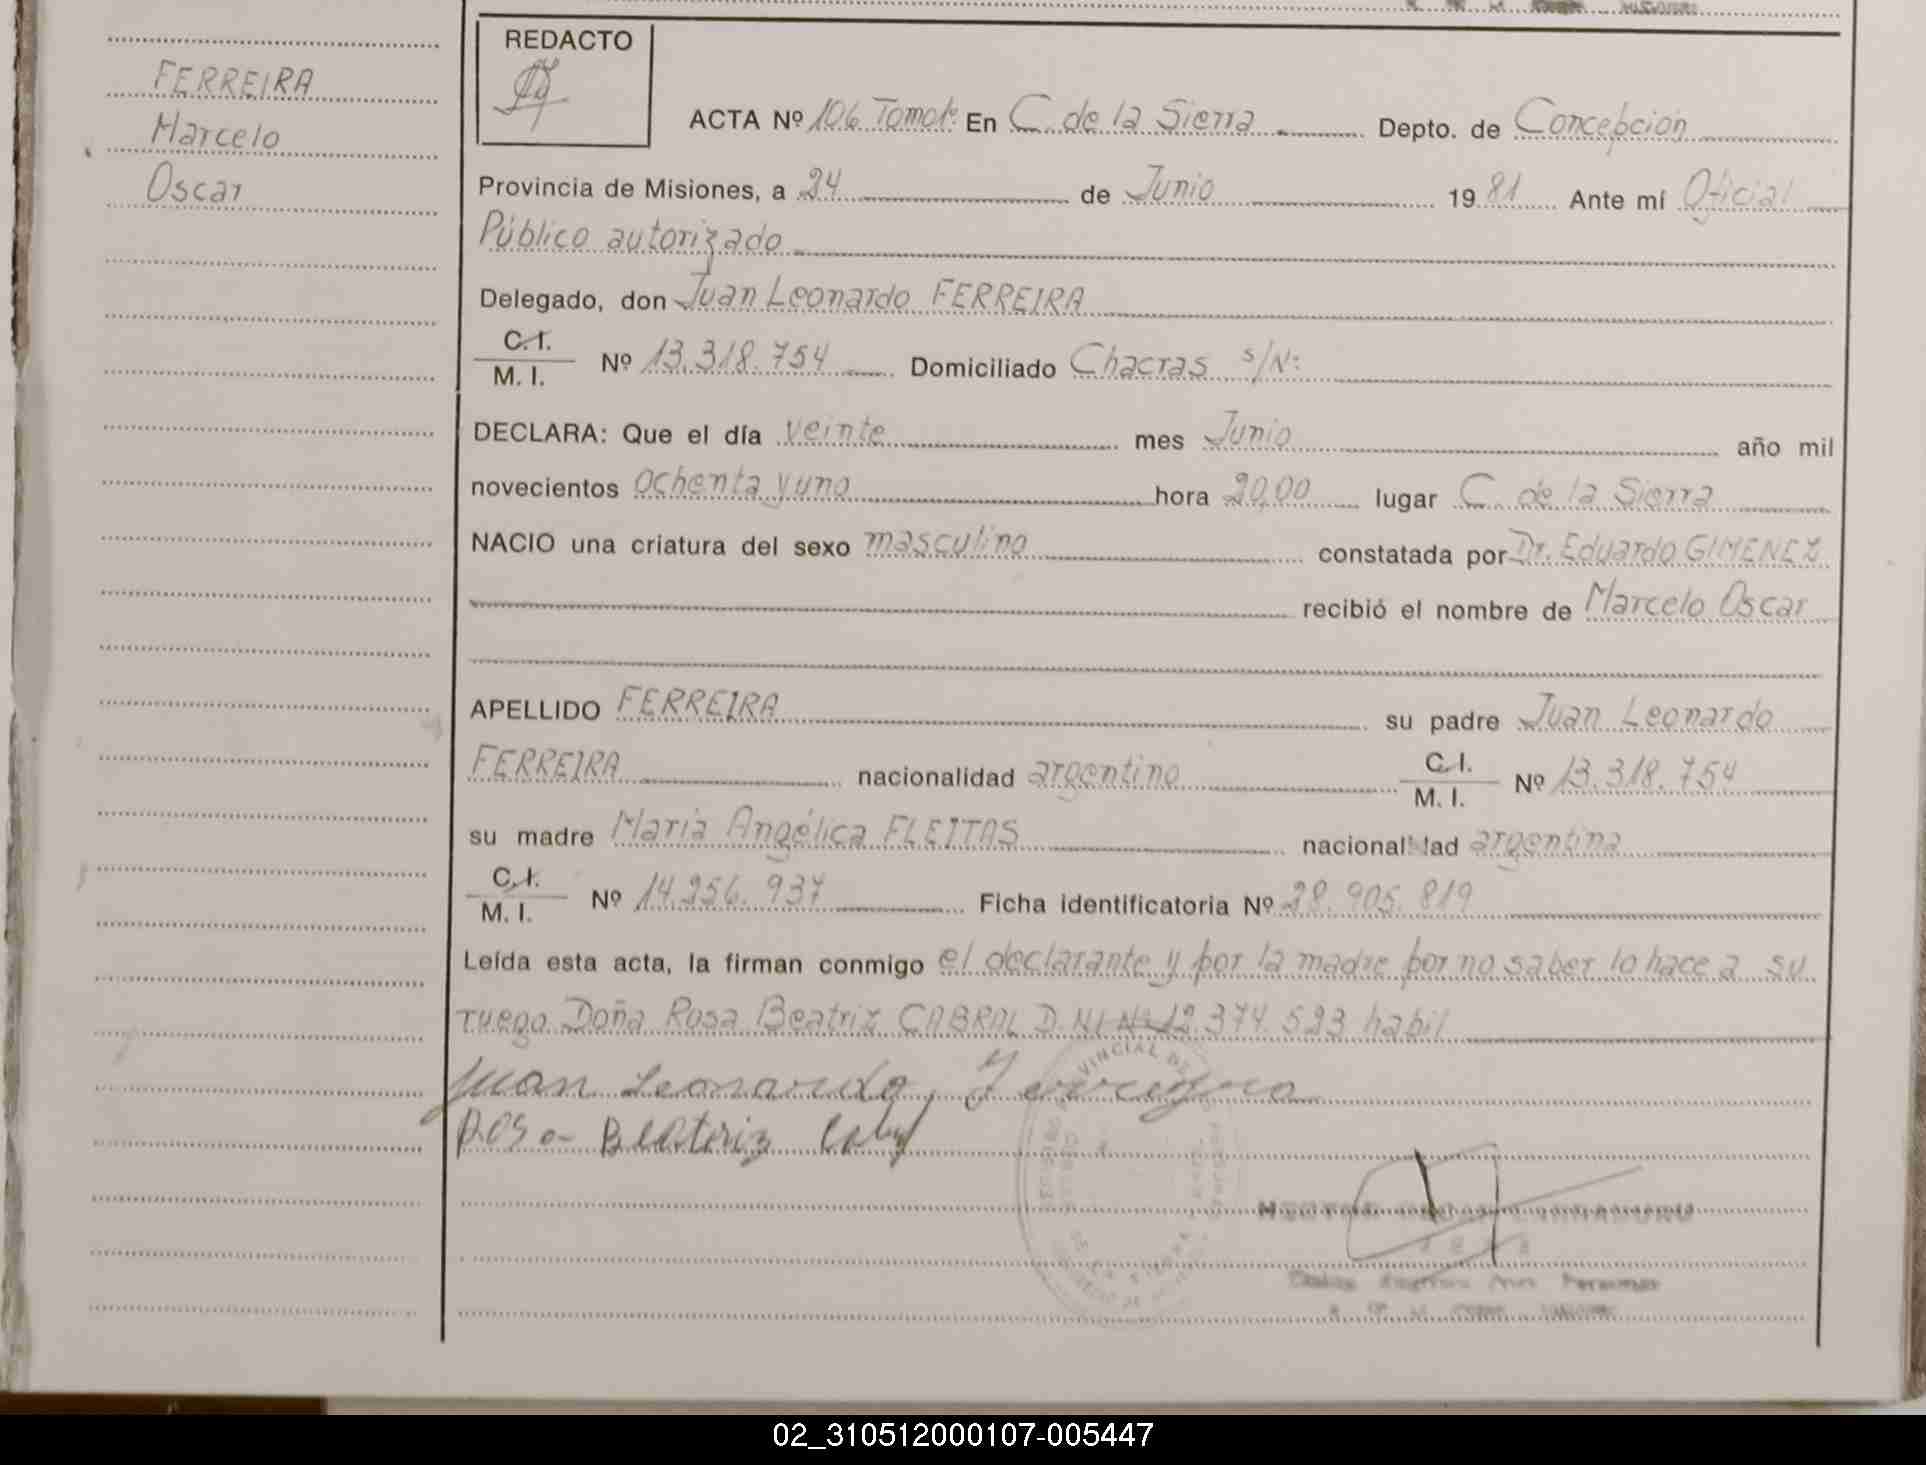 FERREIRA
Marcelo
Oscar
REDACTO
ACTA Nº 106 Tomo En C. de la Sierra Depto. de Concepción
Provincia de Misiones, a 24 de Junio 1981 Ante mí Oficial
Público autorizado
Delegado, don Juan Leonardo FERREIRA
C.I.
M. I. Nº 13.318.754 Domiciliado Chacras s/Nº:
DECLARA: Que el día veinte mes Junio año mil
novecientos ochenta y uno hora 20,00 lugar C. de la Sierra
NACIO una criatura del sexo masculino constatada por Dr. Eduardo GIMENEZ
recibió el nombre de Marcelo Oscar
APELLIDO FERREIRA su padre Juan Leonardo
FERREIRA nacionalidad argentino C.I. M. I. Nº 13.318.754
su madre Maria Angélica FLEITAS nacionalidad argentina
C.I.
M. I. Nº 14.256.937 Ficha identificatoria Nº 28.905.819
Leída esta acta, la firman conmigo el declarante y por la madre por no saber lo hace a su
ruego Doña Rosa Beatriz CABRAL D.N.I Nº 12.374.523 habil
Juan Leonardo Ferreyra
Rosa Beatriz
02_310512000107-005447